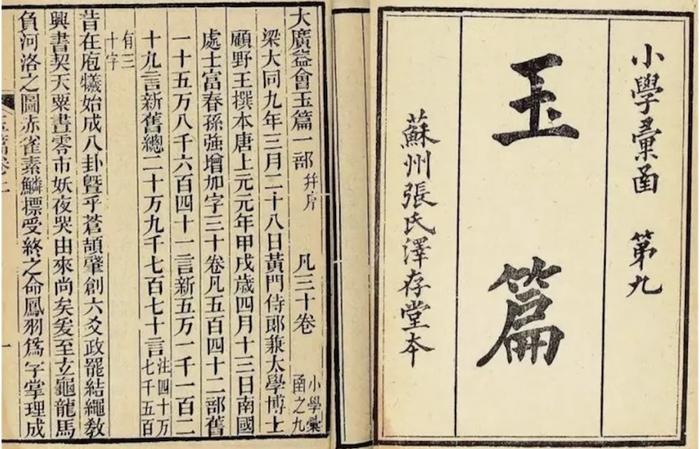 小學彙函　第九
玉篇
蘇州張氏澤存堂本
大廣益會玉篇一部 并序　凡三十卷 小學彙函之九
梁大同九年三月二十八日黃門侍郎兼太學博士
顧野王撰本唐上元元年甲戌歲四月十三日南國
處士富春孫強增加字三十卷凡五百四十二部舊
一十五万八千六百四十一言新五万一千一百二
十九言新舊總二十万九千七百七十言 注四十万七千五百
有三十字
昔在庖犧始成八卦暨乎蒼頡肇創六爻政罷結繩敎
興書契天粟晝零市妖夜哭由來尚矣爰至玄龜龍馬
負河洛之圖赤雀素鱗標受終之命鳳羽爲字掌理成
一